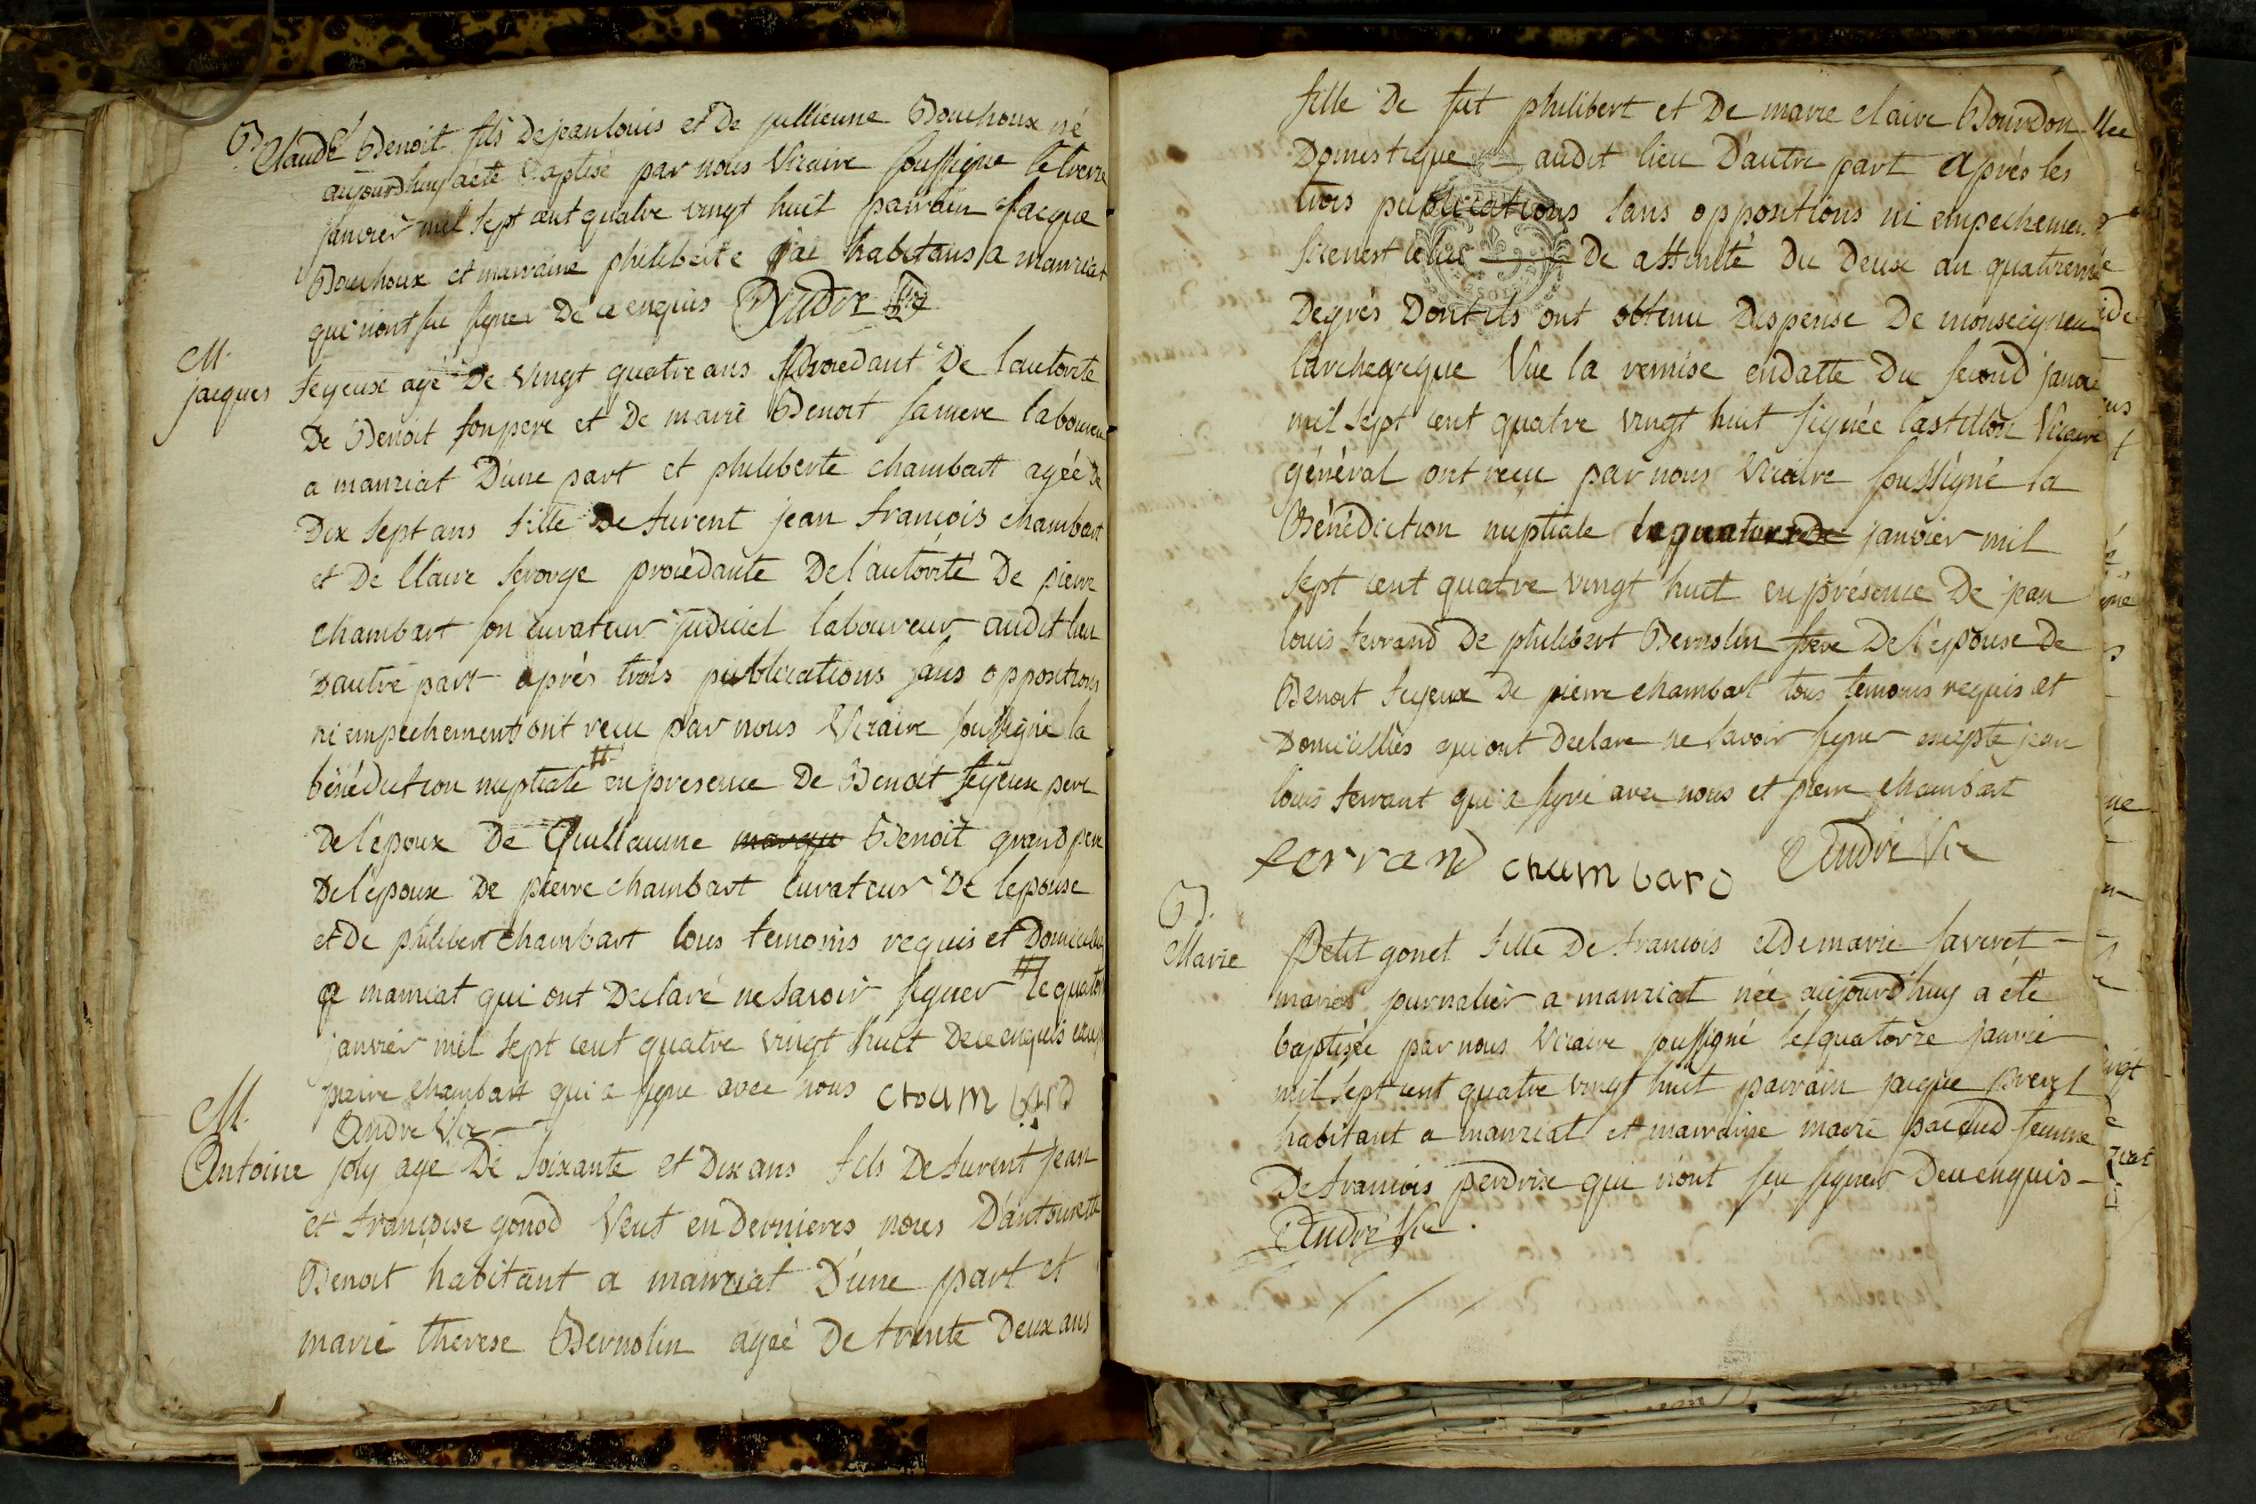 B
Claude Benoit fils de jean louis et de jullienne Bouchoux né
aujourdhuy a été baptisé par nous Vicaire soussigné le treize
janvier mil sept cent quatre vingt huit parrain jacque
Bouchoux et marraine philiberte habitans a manziat
qui n'ont su signer de ce enquis André Vic
M.
jacques feyeux agé de vingt quatre ans procedant de l'autorité
de Benoit son pere et de marie Benoit sa mere laboureur
a manziat d'une part et philiberte chambart agée de
dix sept ans fille de furent jean francois chambart
et de Claire ferorge procédante de l'autorité de pierre
chambart son curateur judiciel laboureur audit lieu
d'autre part après trois publications sans oppositions
ni empechement ont recu par nous Vicaire soussigné la
bénédiction nuptiale # en presence de Benoit feyeux pere
de l'epoux de Guillaume Benoit grand pere
de l'epoux de pierre chambart curateur de l'epouse
et de philibert chambart tous temoins requis et domiciliés
a manziat qui ont declaré ne savoir signer # le quatorze
janvier mil sept cent quatre vingt huit de ce enquis excepté
pierre chambart qui a signé avec nous chambard
André Vic
M.
Antoine joly agé de soixante et dix ans fils de furent jean
et francoise gonod Veuf en dernieres noces d'antoinette
Benoit habitant a manziat d'une part et
marie therese Bernolin agée de trente deux ans
fille de fut philibert et de marie claire Bourdon
domestique audit lieu d'autre part après les
trois publications sans oppositions ni empechement
si ce n'est celui de affinité du deux au quatrieme
degrés dont ils ont obtenu dispense de monseigneur
l'archeveque Vue la remise en datte du second janvier
mil sept cent quatre vingt huit signée Castillon Vicaire
général ont recu par nous Vicaire soussigné la
Bénédiction nuptiale le quatorze janvier mil
sept cent quatre vingt huit en présence de jean
louis ferrand de philibert Bernolin frere de l'epouse de
Benoit feyeux de pierre chambart tous temoins requis et
domiciliés qui ont declaré ne savoir signer excepté jean
louis ferrant qui a signé avec nous et pierre chambart
ferrand chambard André Vic
B.
Marie Petit gonet fille de francois et de marie faveret
mariés journalier a manziat née aujourd'huy a été
baptisée par nous Vicaire soussigné le quatorze janvier
mil sept cent quatre vingt huit parrain jacque
habitant a manziat et marraine marie pacoud femme
de francois perdrix qui n'ont su signer de ce enquis
André Vic